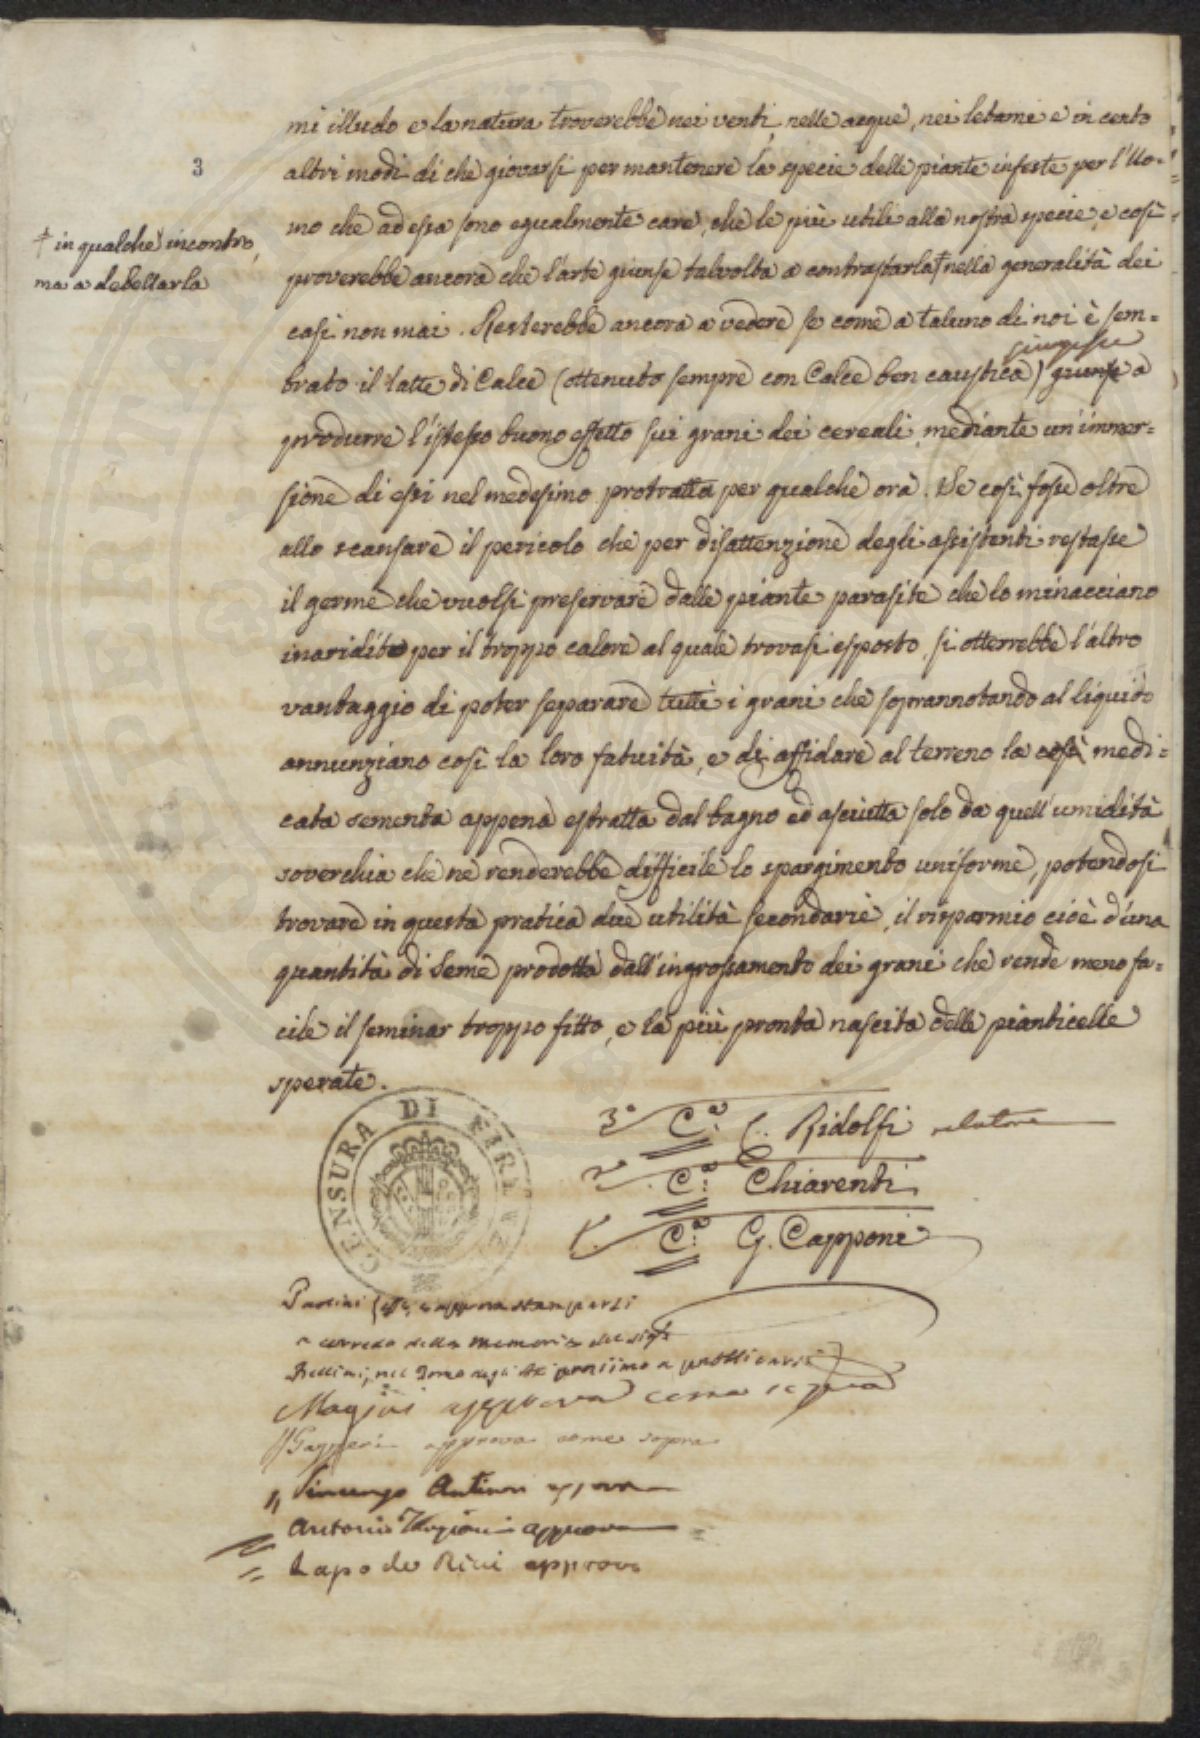 3
† in qualche incontro,
ma a debellarla
mi illudo e la natura troverebbe nei venti, nelle acque, nei letami e in cento
altri modi di che giovarsi per mantenere la specie delle piante infeste per l'Uo=
mo che ad essa sono egualmente care, che le più utili alla nostra specie, e così
proverebbe ancora che l'arte giunse talvolta a contrastarla† nella generalità dei
casi non mai. Resterebbe ancora a vedere se come a taluno di noi è sem=
giungesse
brato il latte di Calce (ottenuto sempre con Calce ben caustica) giunse a
produrre l'istesso buono effetto sui grani dei cereali, mediante un'immer=
sione di essi nel medesimo protratta per qualche ora. Se così fosse oltre
allo scansare il pericolo che per disattenzione degli assistenti restasse
il germe che vuolsi preservare dalle piante parasite che lo minacciano
inaridito per il troppo calore al quale trovasi esposto, si otterrebbe l'altro
vantaggio di poter separare tutti i grani che soprannotando al liquido
annunziano così la loro fatuità, e di affidare al terreno la così medi=
cata sementa appena estratta dal bagno ed asciutta solo da quell'umidità
soverchia che ne renderebbe difficile lo spargimento uniforme, potendosi
trovare in questa pratica due utilità secondarie, il risparmio cioè d'una
quantità di seme prodotta dall'ingrossamento dei grani che rende meno fa=
cile il seminar troppo fitto, e la più pronta nascita delle pianticelle
sperate.
3° Cᵉ: C. Ridolfi relatore
2° Cᵉ: Chiarenti
1° Cᵉ: G. Capponi
CENSURA DI FIRENZE
approva stamparsi
a corredo della memoria del sigʳ
Bellini, nel Tomo degli Atti prossimo a pubblicarsi
Magini approva come sopra
Gazzeri approva come sopra
Vincenzo Antinori approva
Antonio approva
Lapo de Ricci approva